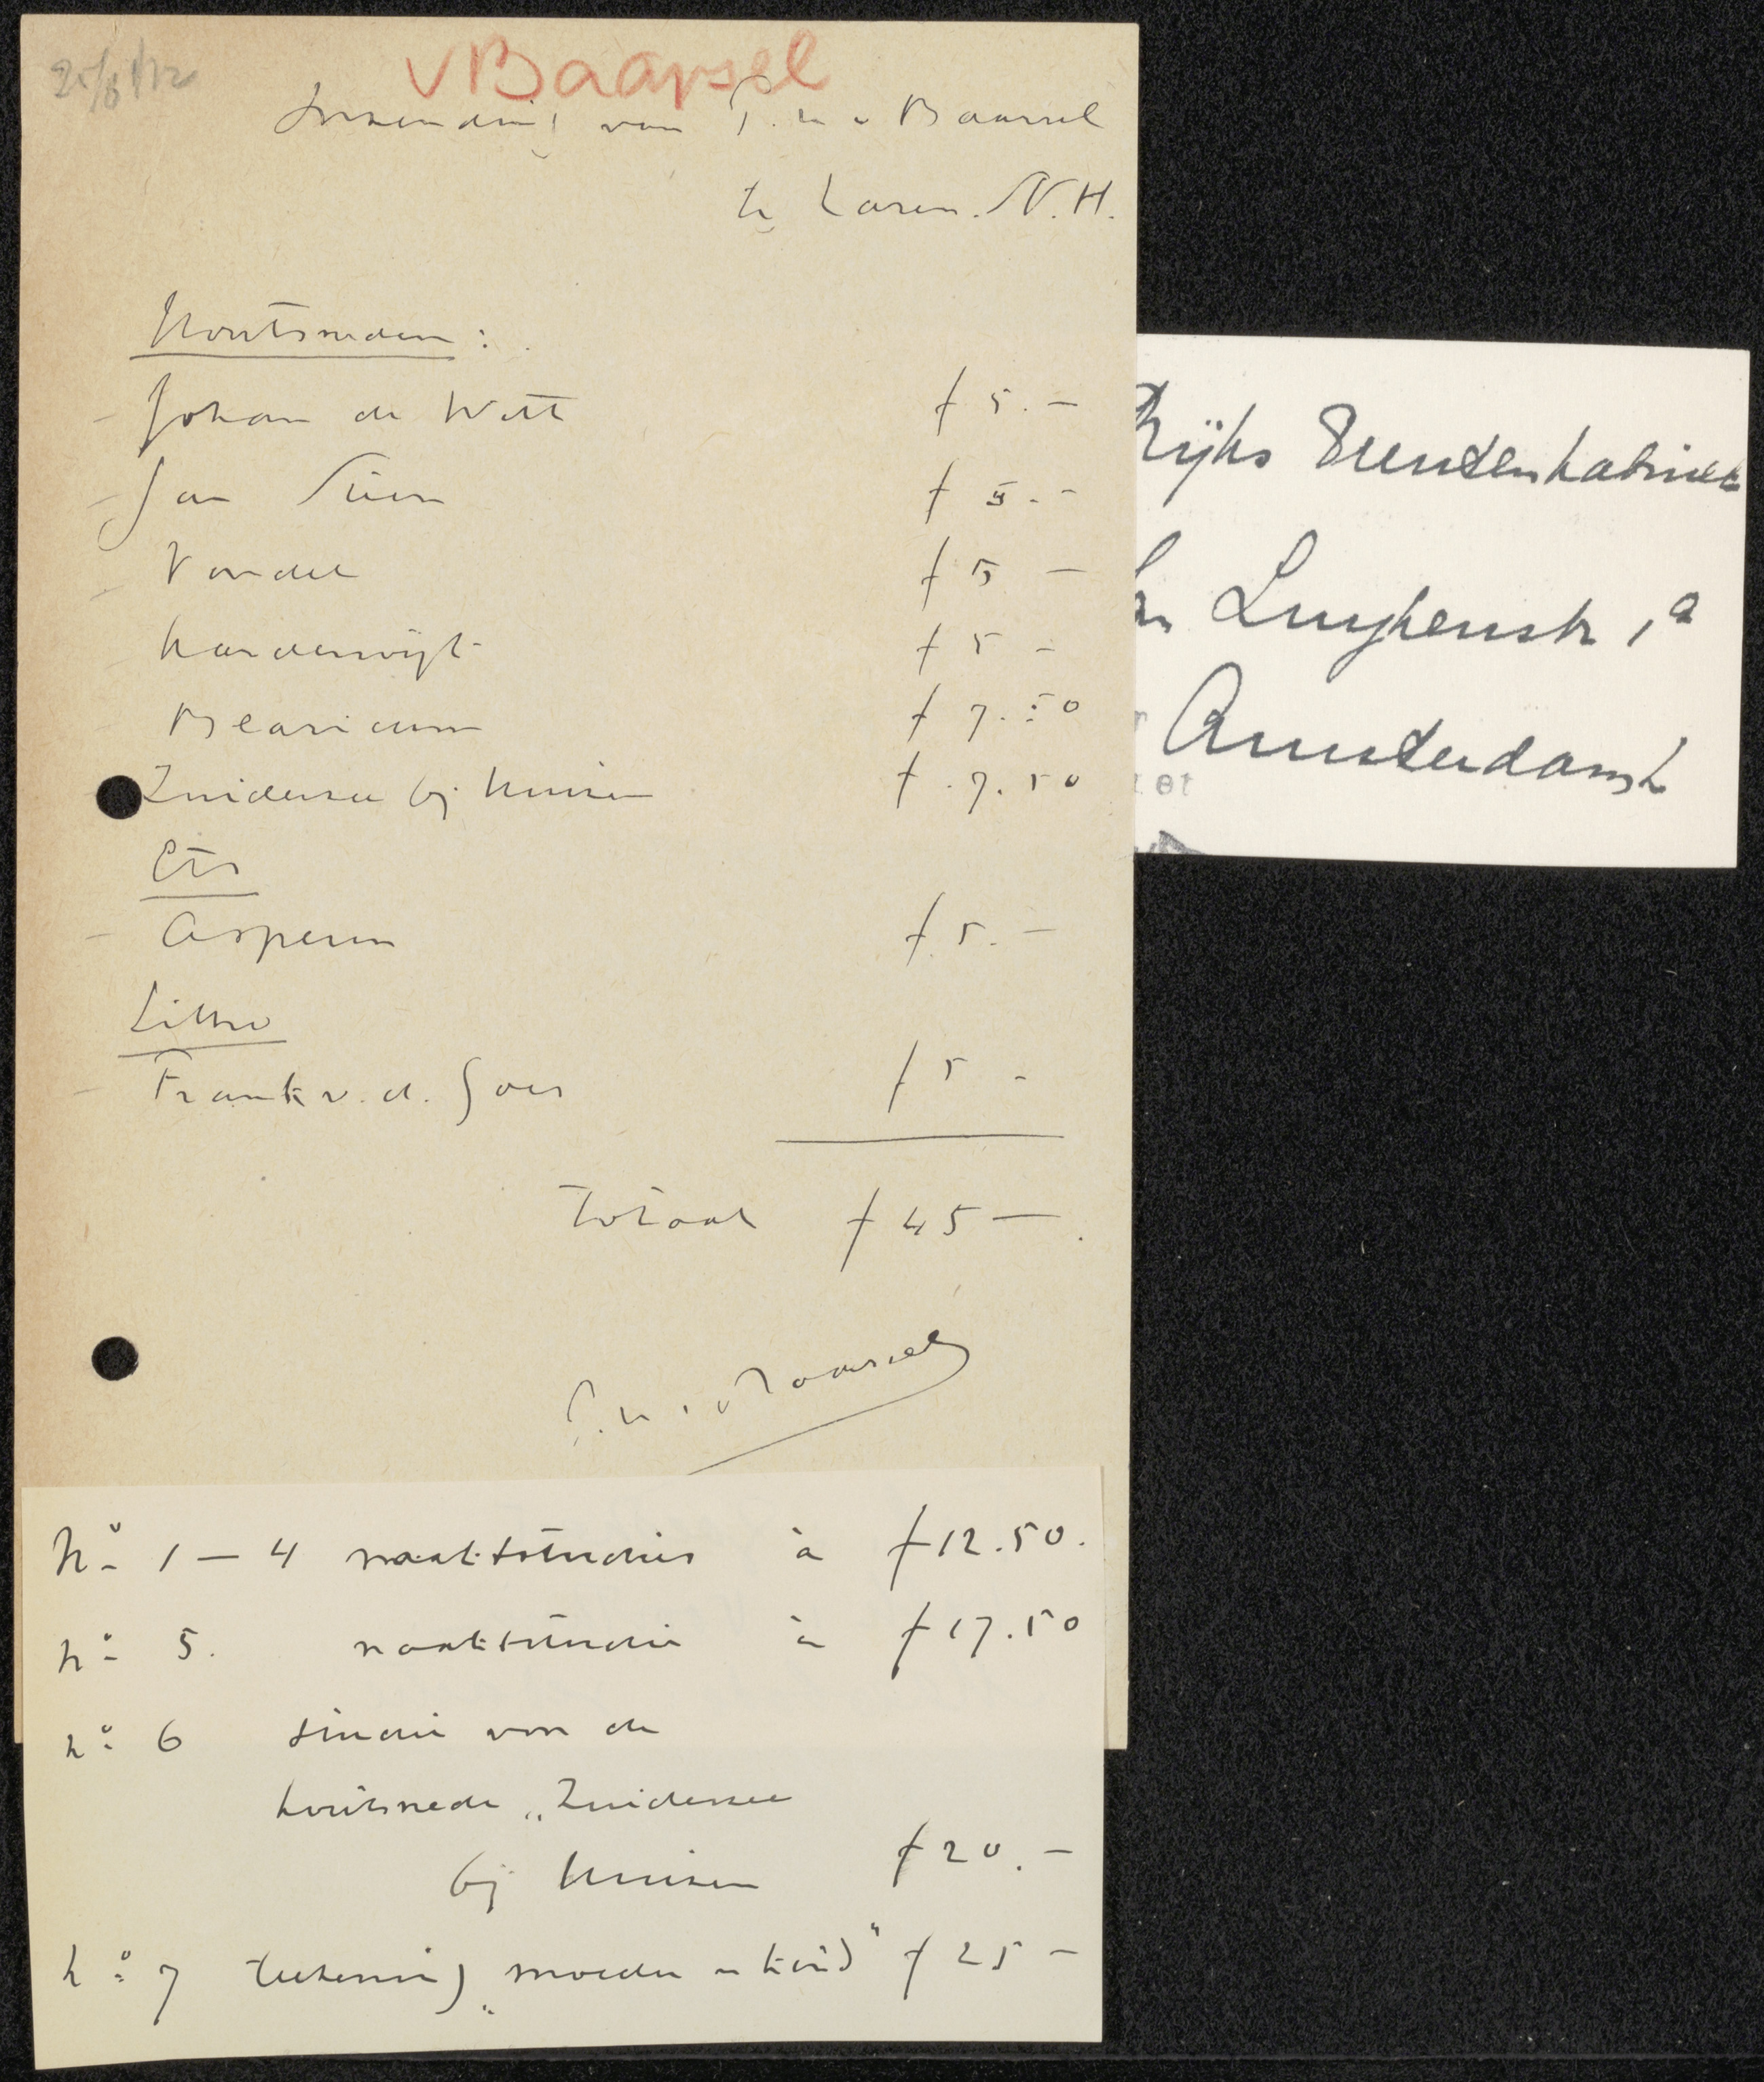 vBaarsel
Inzending van P. v. Baarsel
te Laren. N.H.
Houtsneden :
- Johan de Witt f 5. -
- Jan Steen f 5. -
- Vondel f 5 -
- Harderwijk f 5 -
- Blaricum f 7.50
Zuiderzee bij Huizen f. 7.50
Ets
- Asperen f. 5. -
Litho
- Frank v. d. Goes f 5 -
Totaal f 45 -.
Baarsel
No 1 - 4 naaktstudies à f 12.50.
No 5. naaktstudie à f 17.50
No 6 studie van de
houtsnede „Zuiderzee
bij Huizen f 20. -
No 7 teekening „moeder en kind" f 25 -
Rijks Prentenkabinet
Luykenstr 1a
Amsterdam Z